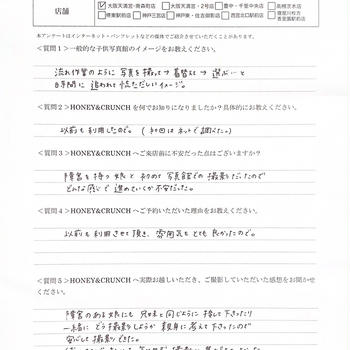 店舗
大阪天満宮・南森町店
大阪天満宮・2号店
豊中・千里中央店
高槻茨木店
堺東駅前店
神戸三宮店
神戸東・住吉御影店
西宮北口駅前店
本アンケートはインターネット・パンフレットなどの媒体でご紹介させていただくことがあります。
＜質問１＞一般的な子供写真館のイメージをお教えください。
流れ作業のように 写真を撮って→着替えて→選ぶ…と
時間に 追われて 慌ただしいイメージ。
＜質問２＞HONEY&CRUNCH を何でお知りになりましたか？具体的にお教えください。
以前も利用したので。（初回はネットで調べた。）
＜質問３＞HONEY&CRUNCH へご来店前に不安だった点はございますか？
障害を持つ娘と 初めて 写真館での 撮影だったので
どんな感じで 進めていくか不安だった。
＜質問４＞HONEY&CRUNCH へご予約いただいた理由をお教えください。
以前も利用させて頂き、雰囲気もとても良かったので。
＜質問５＞HONEY&CRUNCH へ実際お越しいただき、ご撮影していただいた感想をお聞かせください。
障害のある娘にも 兄妹と同じように 接して下さったり
一緒に どう撮影しようか 親身に考えて下さったので
安心して撮影できた。